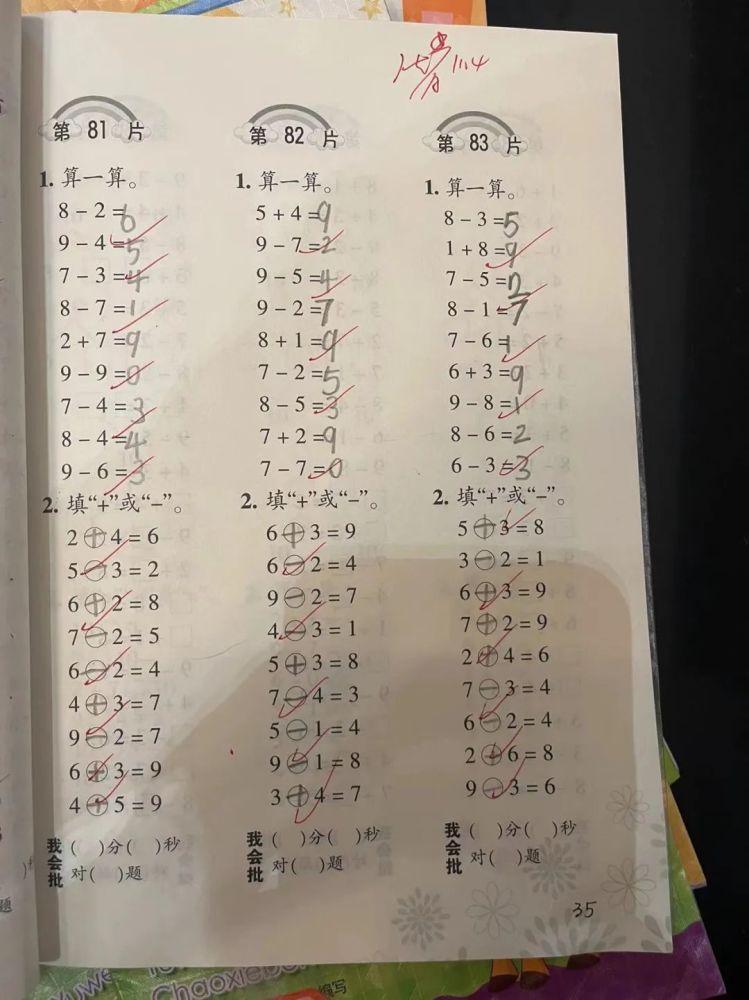 11.4
第 81 片
1. 算一算。
8 - 2 = 6
9 - 4 = 5
7 - 3 = 4
8 - 7 = 1
2 + 7 = 9
9 - 9 = 0
7 - 4 = 3
8 - 4 = 4
9 - 6 = 3
2. 填“+”或“-”。
2 + 4 = 6
5 - 3 = 2
6 + 2 = 8
7 - 2 = 5
6 - 2 = 4
4 + 3 = 7
9 - 2 = 7
6 + 3 = 9
4 + 5 = 9
我会批
( )分( )秒
对( )题
第 82 片
1. 算一算。
5 + 4 = 9
9 - 7 = 2
9 - 5 = 4
9 - 2 = 7
8 + 1 = 9
7 - 2 = 5
8 - 5 = 3
7 + 2 = 9
7 - 7 = 0
2. 填“+”或“-”。
6 + 3 = 9
6 - 2 = 4
9 - 2 = 7
4 - 3 = 1
5 + 3 = 8
7 - 4 = 3
5 - 1 = 4
9 - 1 = 8
3 + 4 = 7
我会批
( )分( )秒
对( )题
第 83 片
1. 算一算。
8 - 3 = 5
1 + 8 = 9
7 - 5 = 2
8 - 1 = 7
7 - 6 = 1
6 + 3 = 9
9 - 8 = 1
8 - 6 = 2
6 - 3 = 3
2. 填“+”或“-”。
5 + 3 = 8
3 - 2 = 1
6 + 3 = 9
7 + 2 = 9
2 + 4 = 6
7 - 3 = 4
6 - 2 = 4
2 + 6 = 8
9 - 3 = 6
我会批
( )分( )秒
对( )题
35
编写